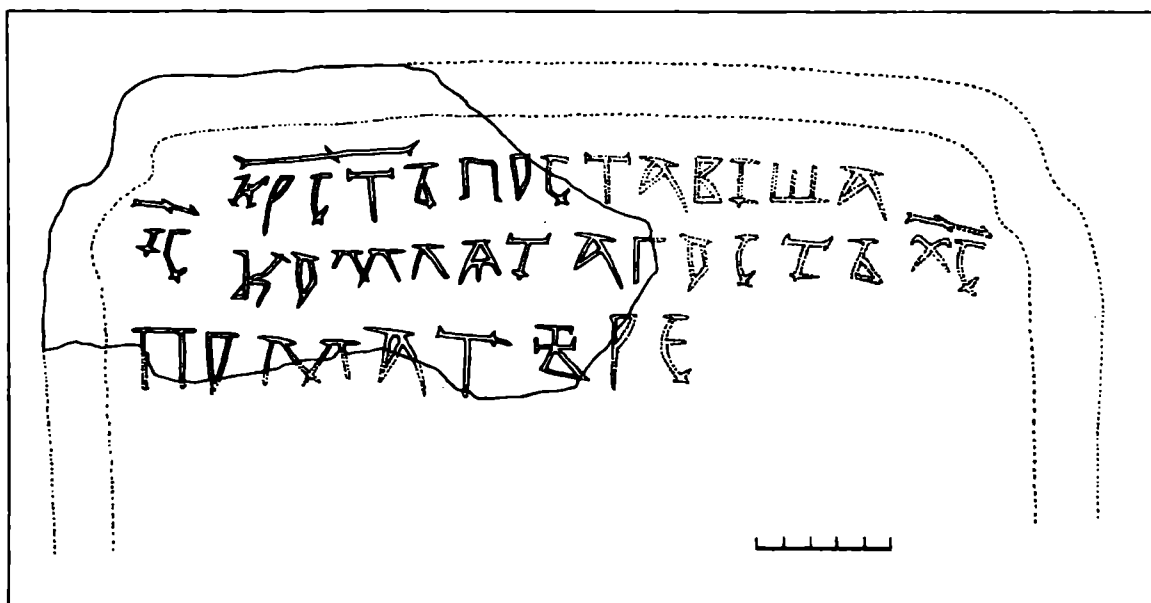 КРСТЪПОСТАВІША
ІС КОМЛѦТАГОСТЪ ХС
ПОМАТѢРЕ